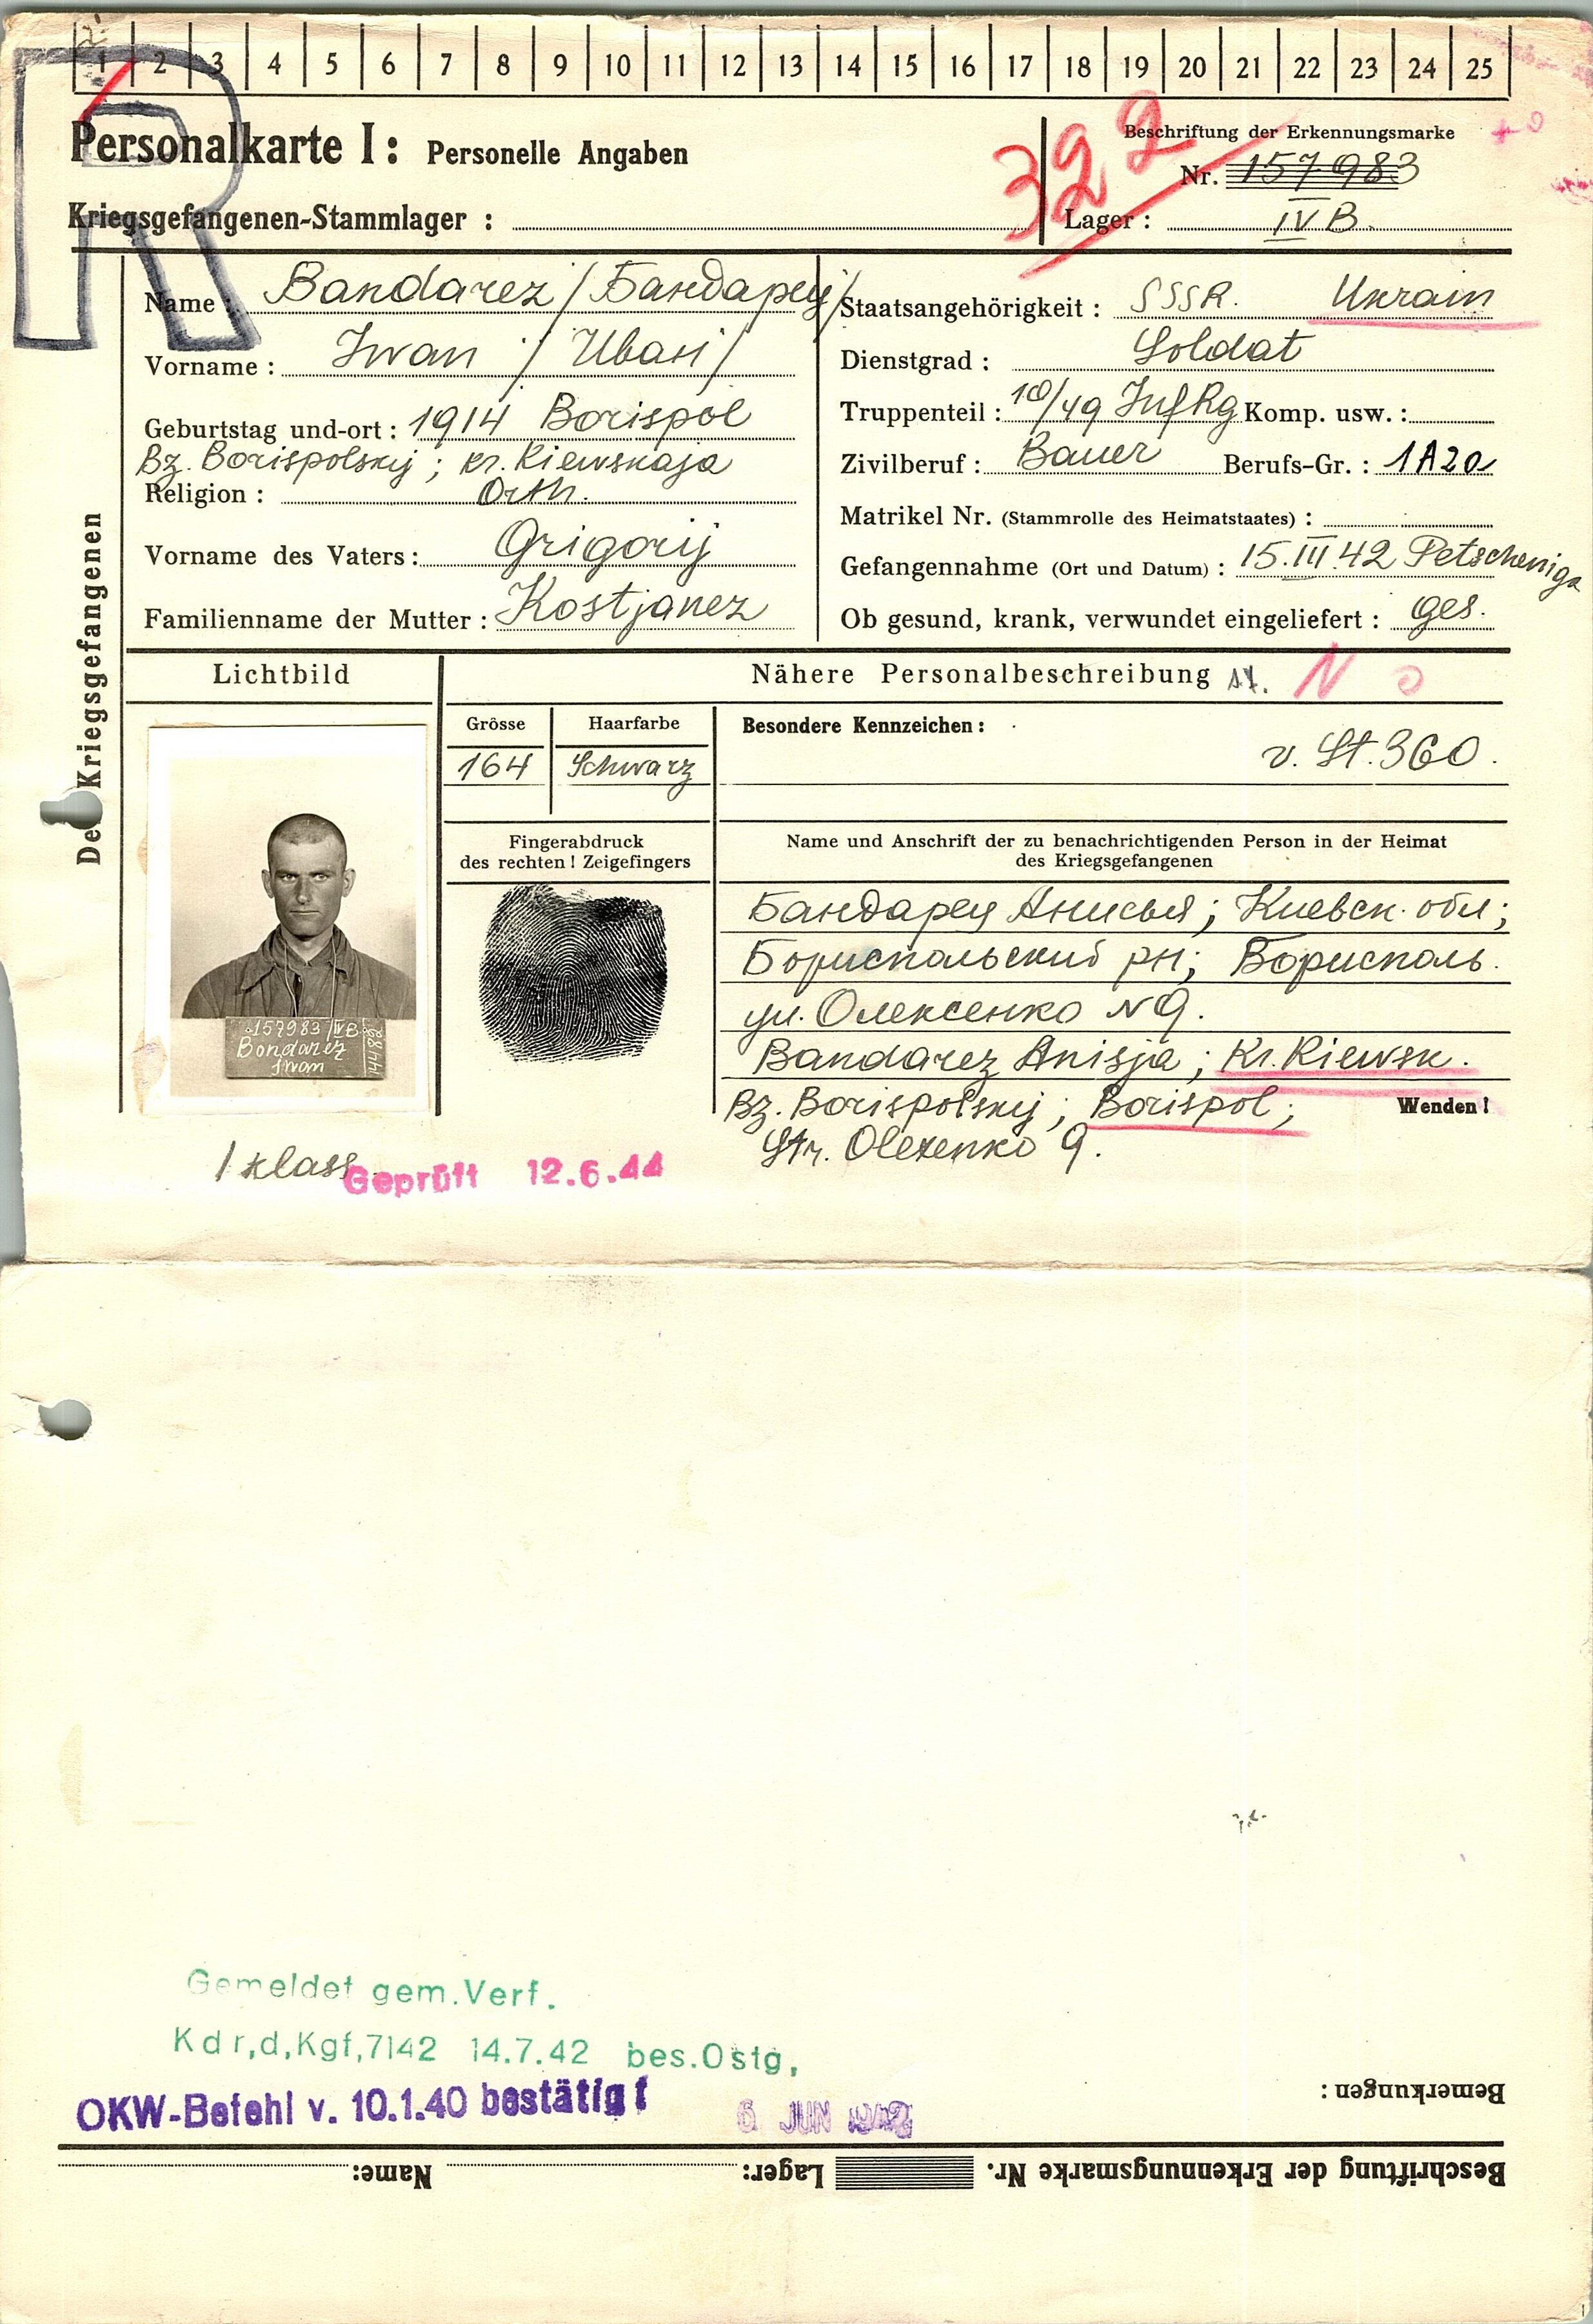 1 2 3 4 5 6 7 8 9 10 11 12 13 14 15 16 17 18 19 20 21 22 23 24 25
R
Personalkarte I: Personelle Angaben
322
Beschriftung der Erkennungsmarke
Nr. 157983
Kriegsgefangenen-Stammlager :
Lager : IV B.
Des Kriegsgefangenen
Name : Bandarez / Бандарец /
Vorname : Iwan / Иван /
Geburtstag und-ort : 1914 Borispol
Bz. Borispolskij ; kr. Kiewskaja
Religion : Orth.
Vorname des Vaters : Grigorij
Familienname der Mutter : Kostjanez
Staatsangehörigkeit : SSSR. Ukrain
Dienstgrad : Soldat
Truppenteil : 10/49 Inf Rg Komp. usw. :
Zivilberuf : Bauer Berufs-Gr. : 1A20
Matrikel Nr. (Stammrolle des Heimatstaates) :
Gefangennahme (Ort und Datum) : 15.III.42 Petscheniga
Ob gesund, krank, verwundet eingeliefert : ges.
Lichtbild
Nähere Personalbeschreibung N
Grösse
164
Haarfarbe
Schwarz
Besondere Kennzeichen :
v. St. 360.
Fingerabdruck
des rechten ! Zeigefingers
Name und Anschrift der zu benachrichtigenden Person in der Heimat
des Kriegsgefangenen
Бандарец Анисья; Киевск. обл;
Бориспольский рн; Борисполь.
ул. Олексенко N 9.
Bandarez Anisja ; Kr. Kiewsk.
Bz. Borispolskij ; Borispol ;
Str. Olexenko 9.
Wenden !
157983 IV B
Bondarez
Iwan
1 klass
Geprüft 12.6.44
Gemeldet gem.Verf.
Kdr,d,Kgf,7142 14.7.42 bes.Ostg,
OKW-Befehl v. 10.1.40 bestätigt
6 JUN 1942
Bemerkungen :
Beschriftung der Erkennungsmarke Nr. Lager: Name: